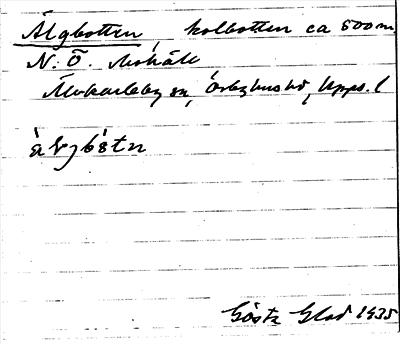 Älgbotten, kolbotten ca 500 m.
N. Ö. Mohäll
Älvkarleby sn, Örbyhus hd, Upps. l
Gösta Glad 1935